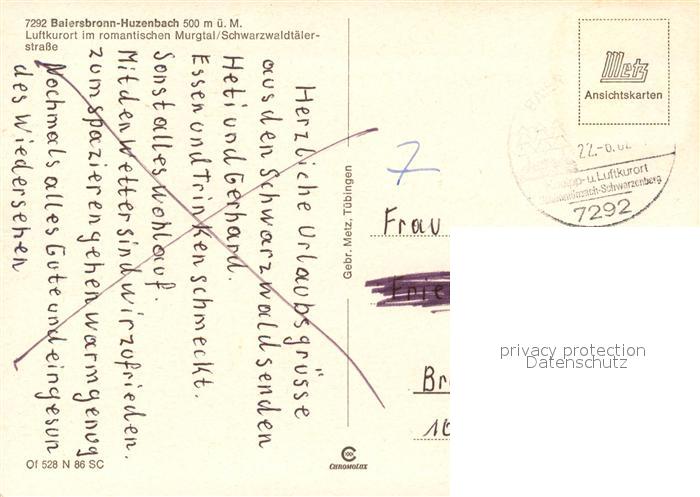 7292 Baiersbronn-Huzenbach 500 m ü. M.
Luftkurort im romantischen Murgtal/Schwarzwaldtäler-
straße
Herzliche Urlaubsgrüsse
aus den Schwarzwald senden
Heti und Gerhard.
Essen und Trinken schmeckt.
Sonst alles wohlauf.
Mit den Wetter sind wir zufrieden.
zum spazieren gehen warm genug
Nochmals alles Gute und ein gesun
des Wiedersehen
Of 528 N 86 SC
Gebr. Metz, Tübingen
CHROMOLUX
Metz
Ansichtskarten
22.-6.82
u. Luftkurort
Schwarzenberg
7292
7
Frau
Frie
Br
privacy protection
Datenschutz